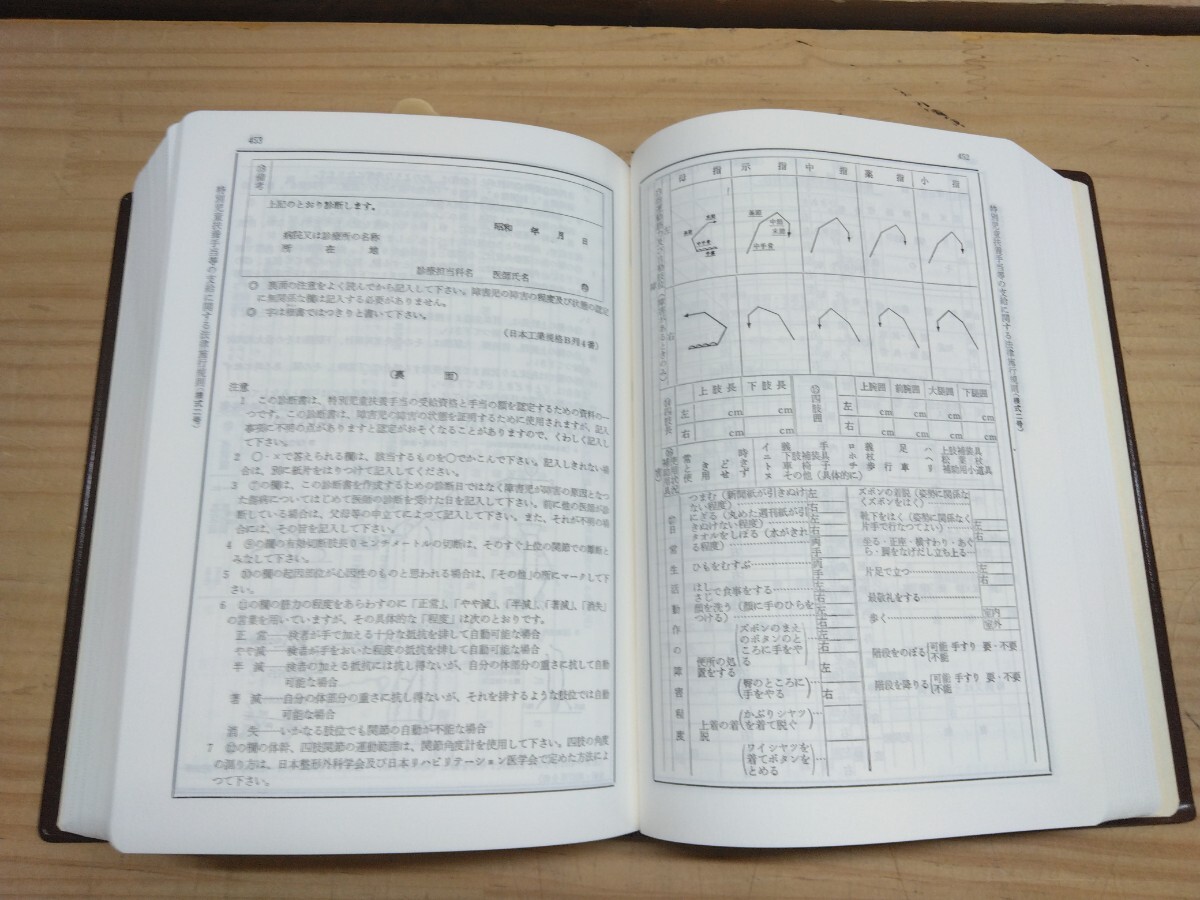 452
特別児童扶養手当等の支給に関する法律施行規則(様式二号)
母指 示指 中指 薬指 小指
左
右
基節
中節
末節
中手骨
上肢長 下肢長
左 cm cm
右 cm cm
四肢囲
上腕囲 前腕囲 大腿囲 下腿囲
左 cm cm cm cm
右 cm cm cm cm
常時
ときどき
使用せず
イ 義手 ロ 義足 ハ 上肢補装具
ニ 下肢補装具 ホ 杖 ヘ 松葉杖
ト 車椅子 チ 歩行車 リ 補助用小道具
ヌ その他(具体的に)
日常生活動作の障害程度
つまむ(新聞紙が引きぬけない程度) 左 右
にぎる(丸めた週刊紙が引きぬけない程度) 左 右
タオルをしぼる(水がきれる程度) 両手
ひもをむすぶ 両手
はし さじ で食事をする 左 右
顔を洗う(顔に手のひらをつける) 左 右
便所の処置をする
(ズボンのまえのボタンのところに手をやる) 左 右
(臀のところに手をやる) 左 右
上着の着脱
(かぶりシャツを着て脱ぐ)
(ワイシャツを着てボタンをとめる)
ズボンの着脱(姿勢に関係なくズボンをはく)
靴下をはく(姿勢に関係なく片手で行なつてよい) 左 右
坐る・正座・横すわり・あぐら・脚をなげだし立ち上る
片足で立つ 左 右
最敬礼をする
歩く 室内 室外
階段をのぼる 可能 手すり 要・不要 不能
階段を降りる 可能 手すり 要・不要 不能
453
特別児童扶養手当等の支給に関する法律施行規則(様式二号)
備考
上記のとおり診断します。
昭和 年 月 日
病院又は診療所の名称
所在地
診療担当科名 医師氏名 ㊞
◎ 裏面の注意をよく読んでから記入して下さい。障害児の障害の程度及び状態の認定
に無関係な欄は記入する必要がありません。
◎ 字は楷書ではつきりと書いて下さい。
(日本工業規格B列4番)
(裏面)
注意
1 この診断書は、特別児童扶養手当の受給資格と手当の額を認定するための資料の一
つです。この診断書は、障害児の障害の状態を証明するために使用されますが、記入
事項に不明の点がありますと認定がおそくなることがありますので、くわしく記入し
て下さい。
2 〇・×で答えられる欄は、該当するものを〇でかこんで下さい。記入しきれない場
合は、別に紙片をはりつけて記入してください。
3 ⑦の欄は、この診断書を作成するための診断日ではなく障害児が障害の原因となつ
た傷病についてはじめて医師の診断を受けた日を記入して下さい。前に他の医師が診
断している場合は、父母等の申立てによつて記入して下さい。また、それが不明の場
合には、その旨を記入して下さい。
4 の欄の有効切断肢長0センチメートルの切断は、そのすぐ上位の関節での離断と
みなして下さい。
5 ⑩の欄の起因部位が心因性のものと思われる場合は、「その他」の所にマークして下
さい。
6 の欄の筋力の程度をあらわすのに「正常」、「やや減」、「半減」、「著減」、「消失」
の言葉を用いていますが、その具体的な「程度」は次のとおりです。
正常――検者が手で加える十分な抵抗を排して自動可能な場合
やや減――検者が手をおいた程度の抵抗を排して自動可能な場合
半減――検者の加える抵抗には抗し得ないが、自分の体部分の重さに抗して自動
可能な場合
著減――自分の体部分の重さに抗し得ないが、それを排するような肢位では自動
可能な場合
消失――いかなる肢位でも関節の自動が不能な場合
7 の欄の体幹、四肢関節の運動範囲は、関節角度計を使用して下さい。四肢の角度
の測り方は、日本整形外科学会及び日本リハビリテーション医学会で定めた方法によ
つて下さい。